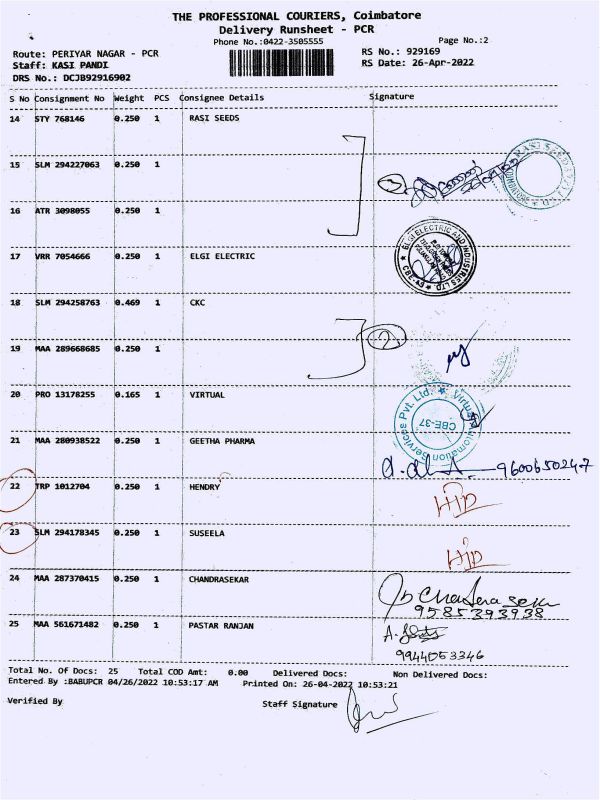 THE PROFESSIONAL COURIERS, Coimbatore
Delivery Runsheet - PCR
Phone No.:0422-3505555 Page No.:2
Route: PERIYAR NAGAR - PCR RS No.: 929169
Staff: KASI PANDI RS Date: 26-Apr-2022
DRS No.: DCJB92916902
S No Consignment No Weight PCS Consignee Details Signature
14 STY 768146 0.250 1 RASI SEEDS
15 SLM 294227063 0.250 1
3
16 ATR 3098055 0.250 1
17 VRR 7054666 0.250 1 ELGI ELECTRIC
ELGI ELECTRIC AND INDUSTRIES LTD
18 SLM 294258763 0.469 1 CKC
2
19 MAA 289668685 0.250 1
20 PRO 13178255 0.165 1 VIRTUAL
Virtual Automation Services Pvt. Ltd. ★
CBE-37
21 MAA 280938522 0.250 1 GEETHA PHARMA
9600650247
22 TRP 1012704 0.250 1 HENDRY
23 SLM 294178345 0.250 1 SUSEELA
24 MAA 287370415 0.250 1 CHANDRASEKAR
9585393938
25 MAA 561671482 0.250 1 PASTAR RANJAN
9944053346
Total No. Of Docs: 25 Total COD Amt: 0.00 Delivered Docs: Non Delivered Docs:
Entered By :BABUPCR 04/26/2022 10:53:17 AM Printed On: 26-04-2022 10:53:21
Verified By Staff Signature